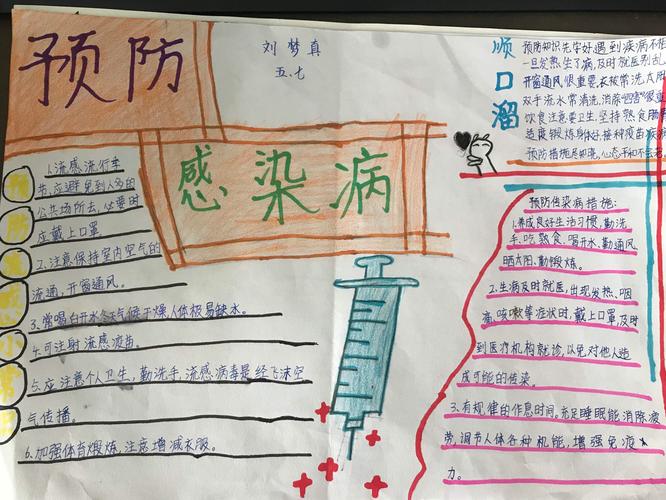 预防
刘梦真
五.七
感染病
顺口溜
预防知识先学好,遇到疾病不
一旦发热生了病,及时就医别乱
开窗通风很重要,衣被常洗太阳
双手流水常清洗,消除“四害”很重
饮食注意要卫生,坚持熟食肠
适度锻炼身体好,接种疫苗疾病
预防措施尽知晓,心态平和
防
小
1.流感流行季
节,应避免到人多的
公共场所去,必要时
应戴上口罩
2.注意保持室内空气的
流通,开窗通风。
3.常喝白开水,冬天气候干燥,人体极易缺水。
4.可注射流感疫苗。
5.应注意个人卫生,勤洗手,流感病毒是经飞沫空
气传播。
6.加强体育煅炼,注意增减衣服。
预防传染病措施:
1.养成良好生活习惯,勤洗
手、吃熟食、喝开水、勤通风
晒太阳、勤锻炼。
2.生病及时就医,出现发热、咽
痛、咳嗽等症状时,戴上口罩,及时
到医疗机构就诊,以免对他人造
成可能的传染。
3.有规律的作息时间。充足睡眠能消除疲
劳,调节人体各种机能,增强免疫
力。